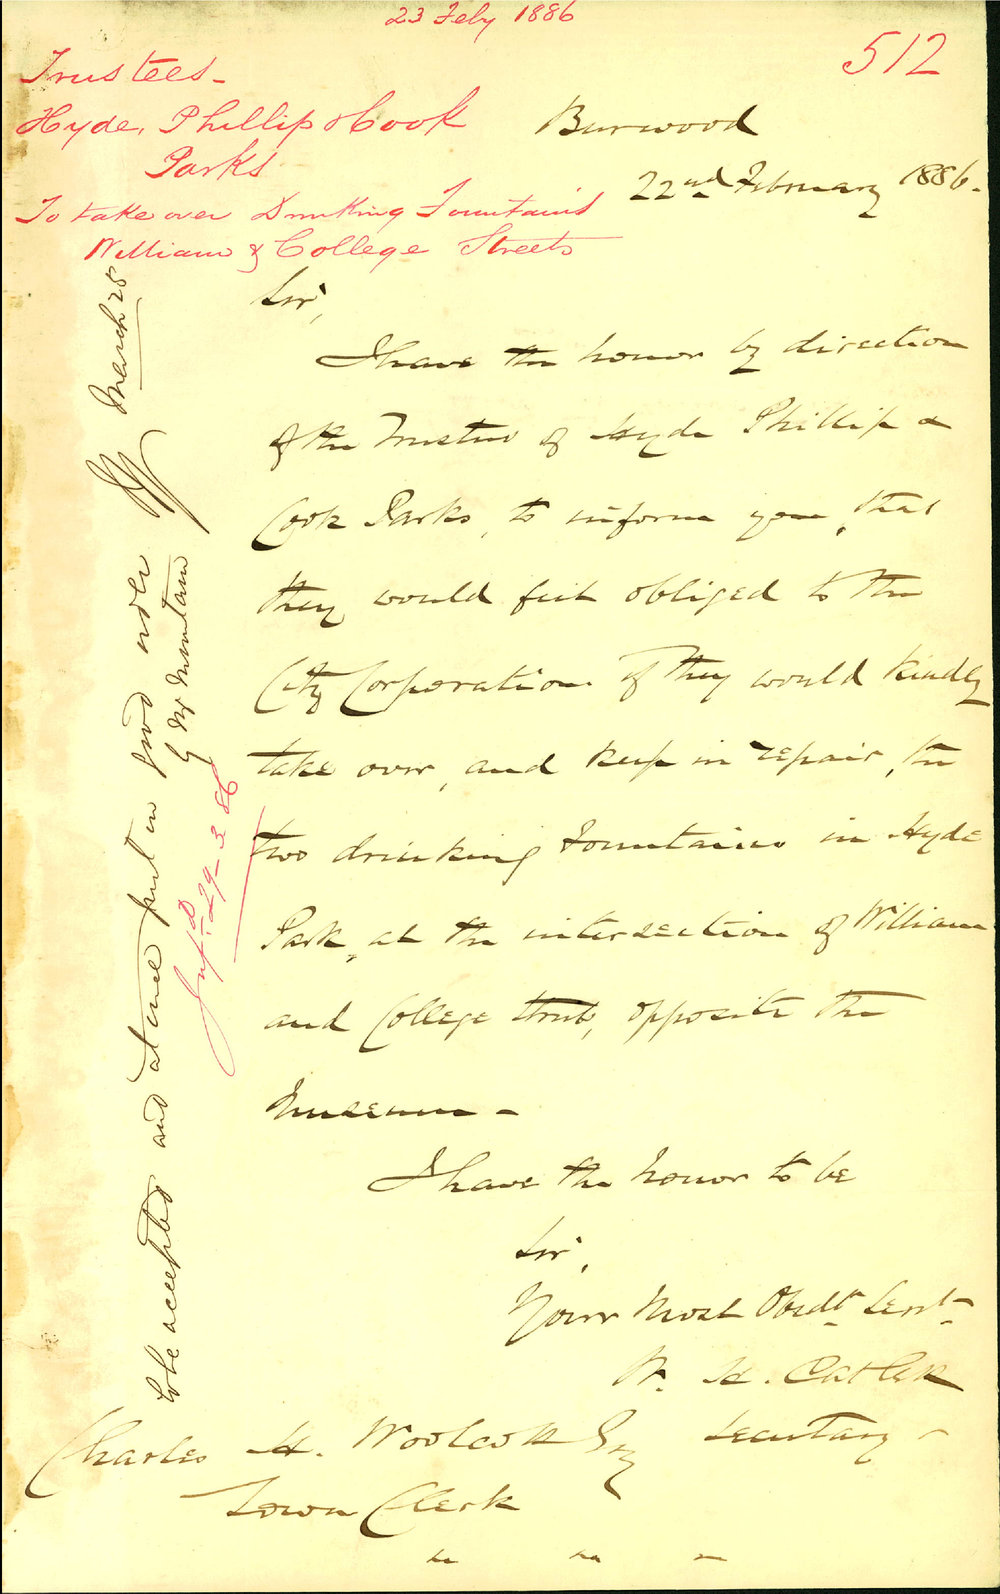 23 Feby 1886
512
Trustees -
Hyde, Phillip & Cook
Parks
To take over Drinking Fountains
William & College Streets
Burwood
22nd February 1886.
Sir,
I have the honor by direction
of the Trustees of Hyde Phillip &
Cook Parks, to inform you, that
they would feel obliged to the
City Corporation if they would kindly
take over, and keep in repair, the
two drinking Fountains in Hyde
Park, at the intersection of William
and College Streets, opposite the
Museum -
I have the honor to be
Sir,
Your Most Obedt. Servt.
W. H. Catlett
Secretary -
Charles H. Woolcott Esq
Town Clerk
to be accepted and at once put in good order
by Mr Mountain
March 25
Infd. 29-3-86